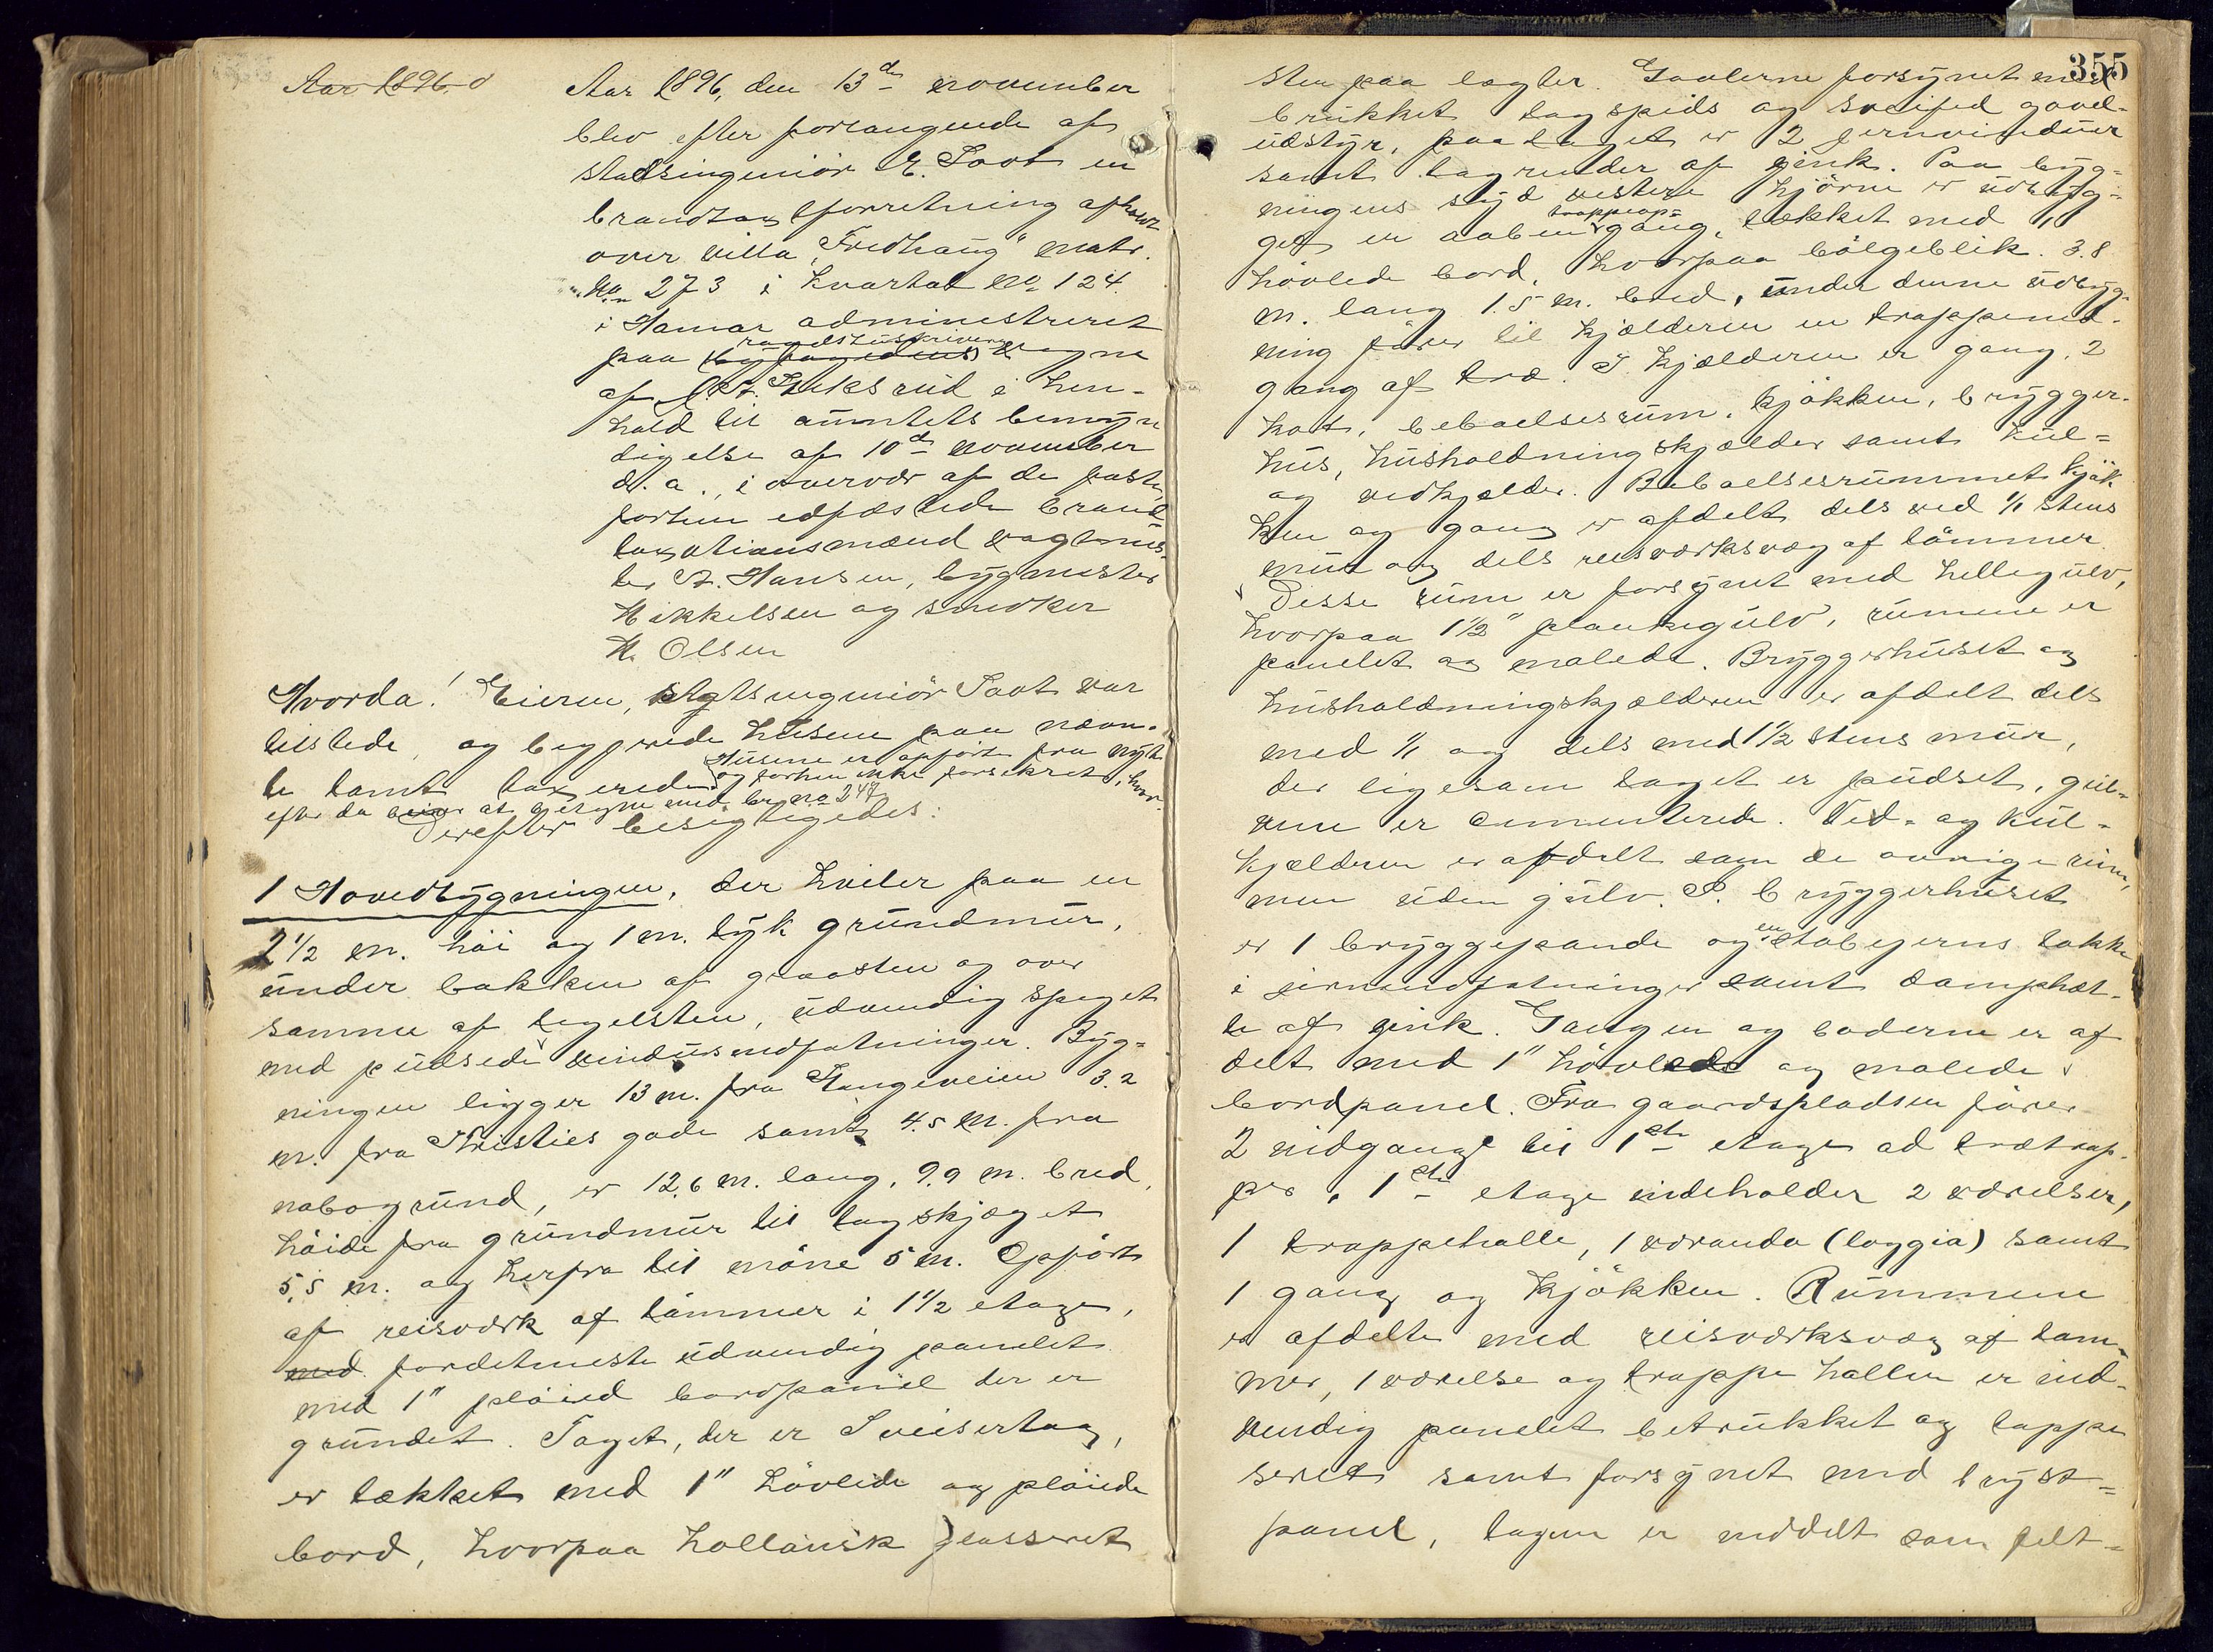 Aar 1896. d
Aar 1896, den 13de november
blev efter forlangende af
stadsingeniör E. Soot en
brandtaxtforretning afholdt
over villa "Fredhaug" matr.
No. 273 i kvartal no 124.
i Hamar administreret
raadstuskriverens
paa byfogedens vegne
af Iuksrud i hen-
hold til amtets bemyn
digelse af 10de november
d. a., i overvær af de faste,
forhen edfæstede brand
taxationsmænd vagtmes-
ter A. Hansen, bygmester
Mikkelsen og snedker
M. Olsen
Hvorda! Eieren, stadsingeniör Soot var
tilstede, og begjærede husene paa nævn-
te tomt taxerede.
Husene er opfört fra nyt
og forhen ikke forsikret, hvor-
efter da at betegne med br. no 247
Derefter besigtigedes:
1 Hovedbygningen, der hviler paa en
2 1/2 m. höi og 1 m. tyk grundmur,
under bakken af graasten og over
samme af teglsten, udvendig spæket
med pudsede vindusindfatninger. Byg-
ningen ligger 13 m. fra Stangeveien 3.2
m. fra Kristies gade samt 4.5 m. fra
nabogrund, er 12,6 m. lang, 9.9 m. bred,
höide fra grundmur til tagskjægget
5,5 m. og herfra til möne 5 m. Opfört
af reisværk af tömmer i 1 1/2 etage,
med fordetmeste udvendig panelet
med 1" plöied bordpanel der er
grundet. Taget, der er Sveisertag,
er tækket med 1" hövlede og plöiede
bord, hvorpaa hollansk glasseret
355
sten paa lægter. Gavlerne forsynet med
brukket tagspids og sveifed gavl-
udstyr, paa taget er 2 jernvinduer
samt tagrender af zink. Paa byg-
ningens syd vestere hjörne er udbyg-
trappeop-
get en aaben gang, tækket med 1"
hövlede bord, hvorpaa bölgeblik. 3.8
m. lang 1.5 m. bred, under denne udbyg-
ning förer til kjælderen en trappened-
gang af træ. I kjælderen er gang, 2
beboelsesrum, kjökken, brygger-
hus, husholdningskjælder samt kul-
og vedkjælder. Beboelsesrummet kjök
ken og gang er afdelt dels ved 1/1 stens
mur og dels reisværksvæg af tömmer
Disse rum er forsynet med hellegulv,
hvorpaa 1 1/2" plankegulv, rummene er
panelet og malede. Bryggerhuset og
husholdningskjælderen er afdelt dels
med 1/1 og dels med 1 1/2 stens mur,
der ligesom taget er pudset, gul-
vene er cementerede. Ved- og kul-
kjælderen er afdelt som de övrige rum,
men uden gulv. I bryggerhuset
er 1 bryggepande og en stöbejerns takke
i jernindfatninger samt damphæt-
te af zink. Gangen og boderne er af
delt med 1" hövlede og malede
bordpanel. Fra gaardspladsen förer
2 indgange til 1ste etage ad trætrap-
per. 1ste etage indeholder 2 værelser,
1 trappehalle, 1 veranda (loggia) samt
1 gang og kjökken. Rummene
er afdelte med reisværksvæg af töm-
mer, 1 værelse og trappe hallen er ind-
vendig panelet betrukket og tappe
seret samt forsynet med bryst-
panel, tagene er inddelt som felt-